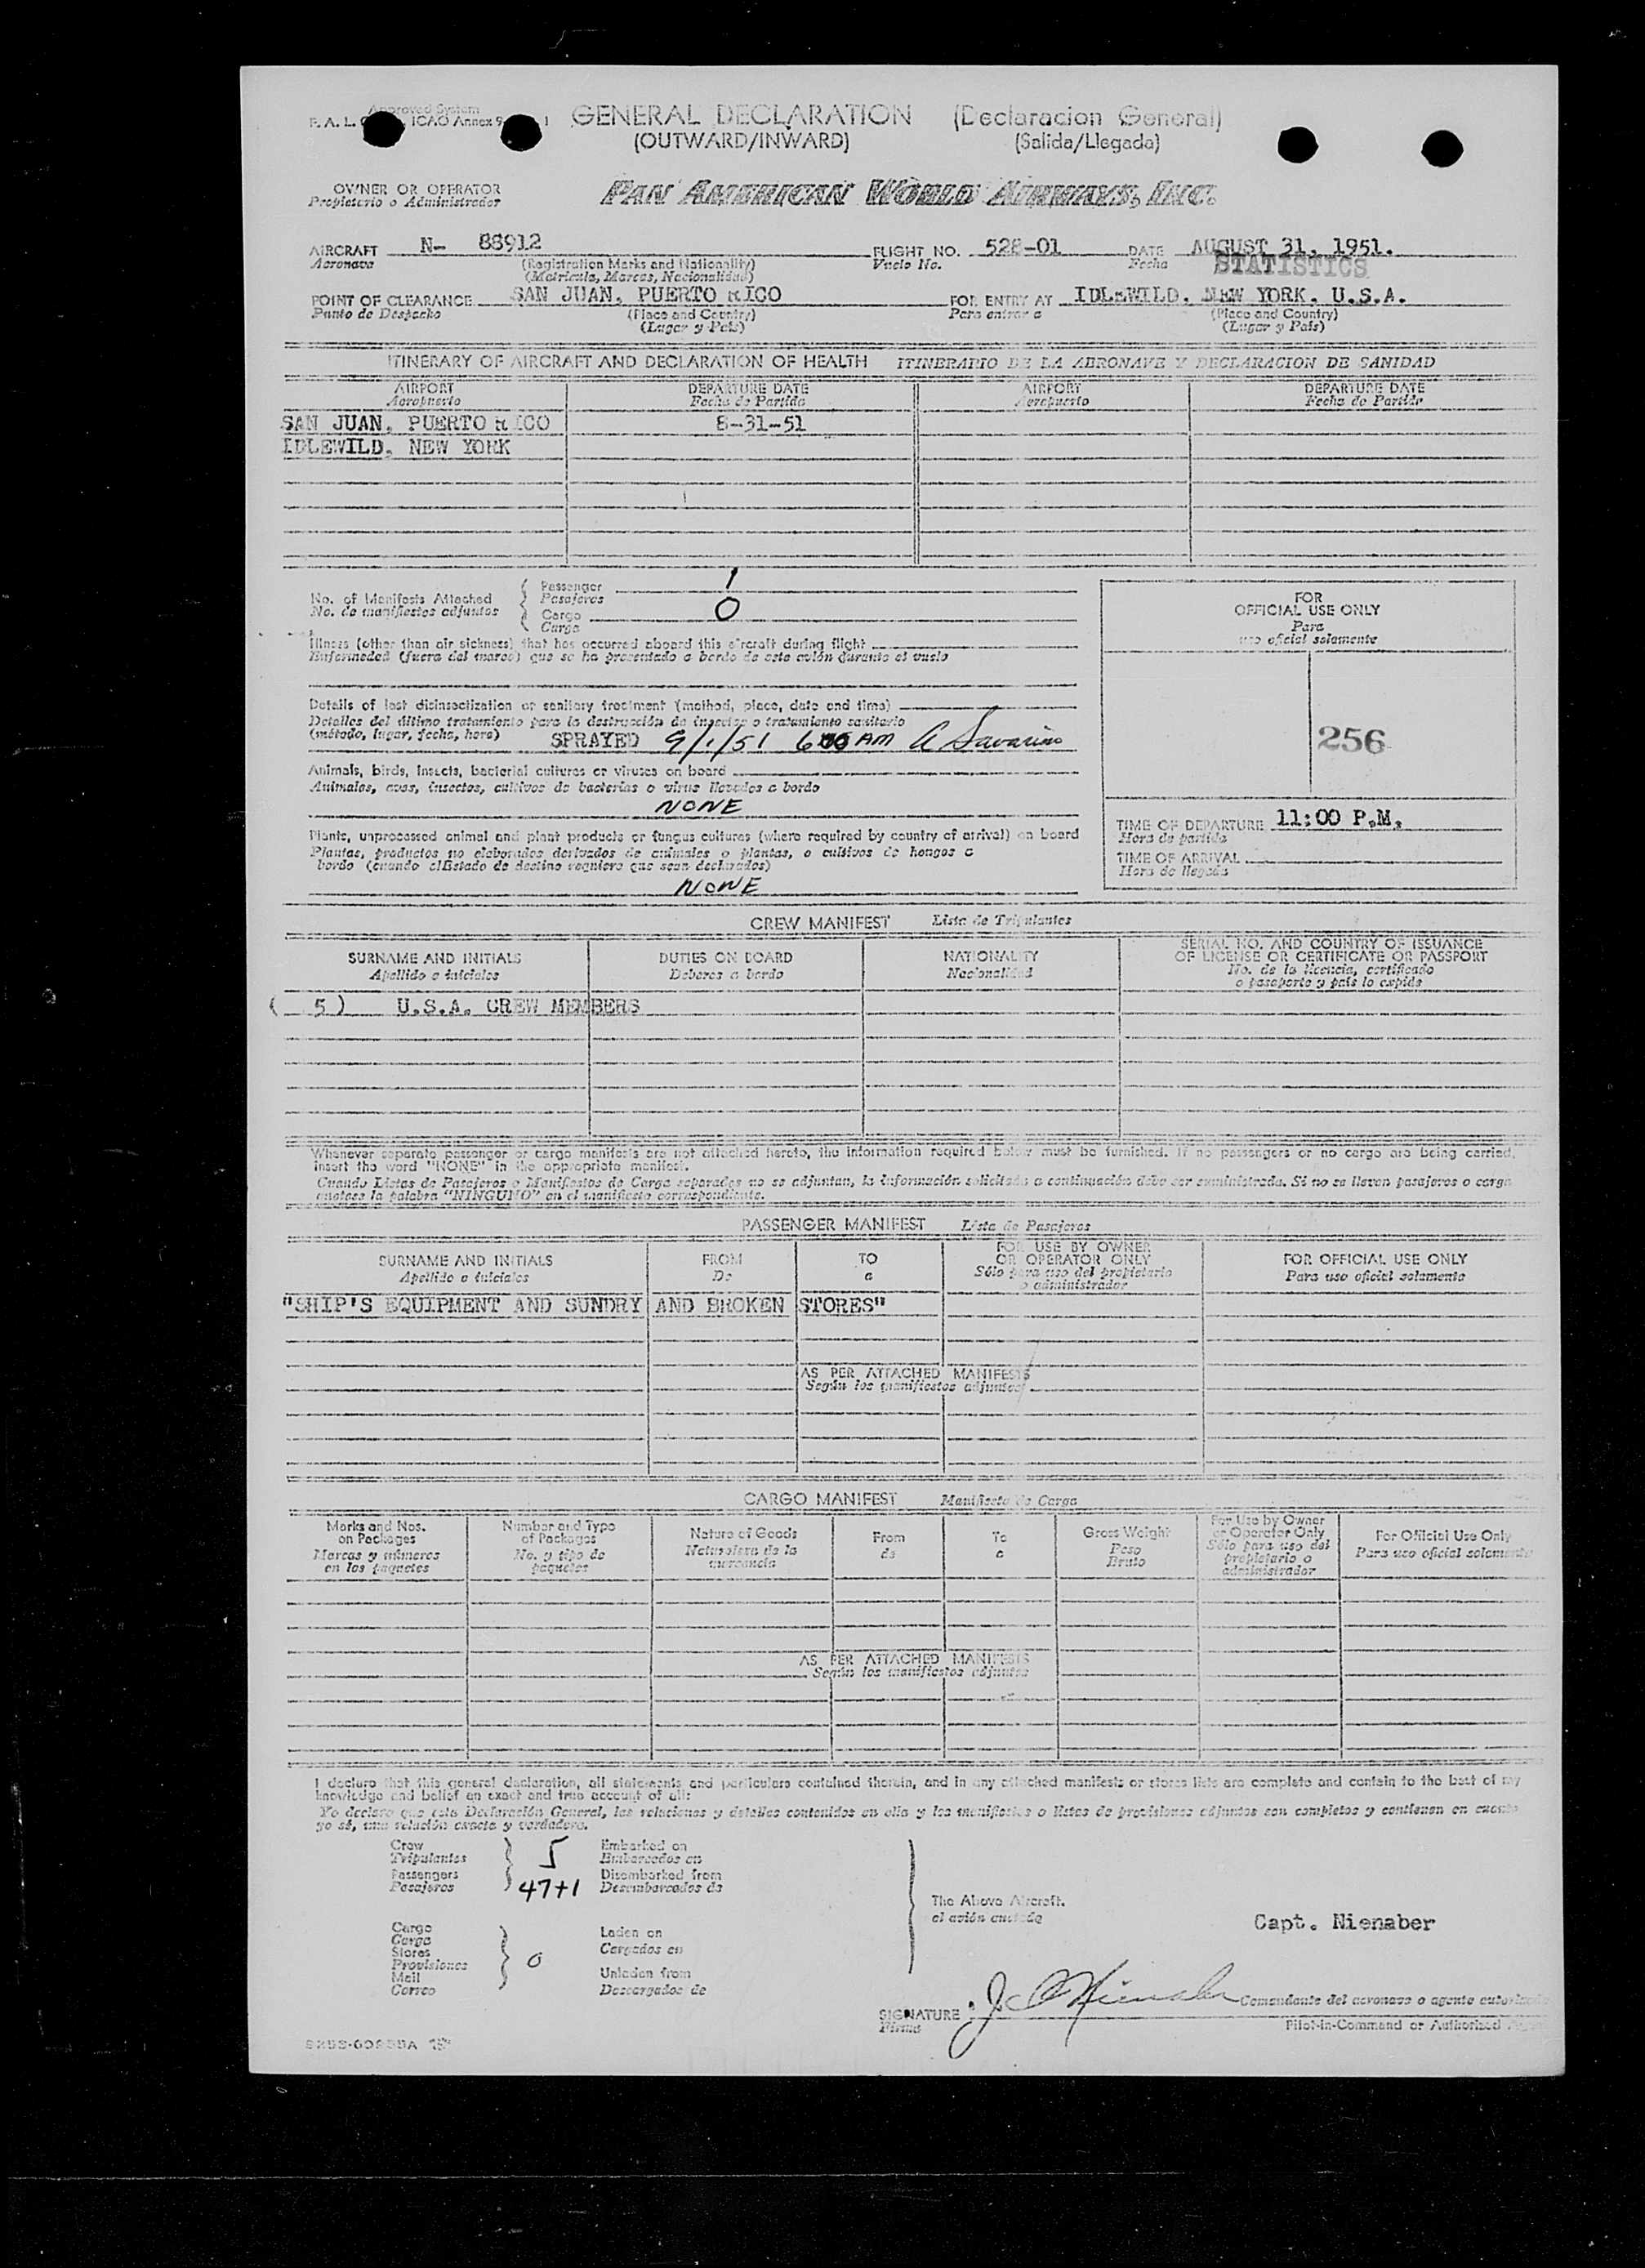 Approved System
F. A. L. ICAO Annex 9 1
GENERAL DECLARATION (Declaracion General)
(OUTWARD/INWARD) (Salida/Llegada)
OWNER OR OPERATOR
Propietario o Administrador
PAN AMERICAN WORLD AIRWAYS, INC.
AIRCRAFT N- 88912 FLIGHT NO. 528-01 DATE AUGUST 31, 1951.
Aeronave (Registration Marks and Nationality) Vuelo No. Fecha STATISTICS
(Matricula, Marcas, Nacionalidad)
POINT OF CLEARANCE SAN JUAN, PUERTO RICO FOR ENTRY AT IDLEWILD, NEW YORK, U.S.A.
Punto de Despacho (Place and Country) Para entrar a (Place and Country)
(Lugar y País) (Lugar y País)
ITINERARY OF AIRCRAFT AND DECLARATION OF HEALTH ITINERARIO DE LA AERONAVE Y DECLARACION DE SANIDAD
AIRPORT DEPARTURE DATE AIRPORT DEPARTURE DATE
Aeropuerto Fecha de Partida Aeropuerto Fecha de Partida
SAN JUAN, PUERTO RICO 8-31-51
IDLEWILD, NEW YORK
No. of Manifests Attached
No. de manifiestos adjuntos
Passenger 1
Pasajeros
Cargo 0
Carga
Illness (other than air sickness) that has occurred aboard this aircraft during flight
Enfermedad (fuera del mareo) que se ha presentado a bordo de este avión durante el vuelo
Details of last disinsectization or sanitary treatment (method, place, date and time)
Detalles del último tratamiento para la destrucción de insectos o tratamiento sanitario
(método, lugar, fecha, hora) SPRAYED 9/1/51 AM A Savarino
Animals, birds, insects, bacterial cultures or viruses on board
Animales, aves, insectos, cultivos de bacterias o virus llevados a bordo
NONE
Plants, unprocessed animal and plant products or fungus cultures (where required by country of arrival) on board
Plantas, productos no elaborados derivados de animales o plantas, o cultivos de hongos a
bordo (cuando el Estado de destino requiere que sean declarados)
NONE
FOR
OFFICIAL USE ONLY
Para
uso oficial solamente
256
TIME OF DEPARTURE 11:00 P.M.
Hora de partida
TIME OF ARRIVAL
Hora de llegada
CREW MANIFEST Lista de Tripulantes
SURNAME AND INITIALS DUTIES ON BOARD NATIONALITY SERIAL NO. AND COUNTRY OF ISSUANCE
OF LICENSE OR CERTIFICATE OR PASSPORT
Apellido e iniciales Deberes a bordo Nacionalidad No. de la licencia, certificado
o pasaporte y país lo expide
( 5 ) U.S.A. CREW MEMBERS
Whenever separate passenger or cargo manifests are not attached hereto, the information required below must be furnished. If no passengers or no cargo are being carried,
insert the word "NONE" in the appropriate manifest.
Cuando Listas de Pasajeros o Manifiestos de Carga separados no se adjuntan, la información solicitada a continuación debe ser suministrada. Si no se llevan pasajeros o carga
anotese la palabra "NINGUNO" en el manifiesto correspondiente.
PASSENGER MANIFEST Lista de Pasajeros
SURNAME AND INITIALS FROM TO FOR USE BY OWNER
OR OPERATOR ONLY FOR OFFICIAL USE ONLY
Apellido e iniciales De a Sólo para uso del propietario
o administrador Para uso oficial solamente
"SHIP'S EQUIPMENT AND SUNDRY AND BROKEN STORES"
AS PER ATTACHED MANIFESTS
Según los manifiestos adjuntos
CARGO MANIFEST Manifiesto de Carga
Marks and Nos.
on Packages
Marcas y números
en los paquetes
Number and Type
of Packages
No. y tipo de
paquetes
Nature of Goods
Naturaleza de la
mercancía
From
de
To
a
Gross Weight
Peso
Bruto
For Use by Owner
or Operator Only
Sólo para uso del
propietario o
administrador
For Official Use Only
Para uso oficial solamente
AS PER ATTACHED MANIFESTS
Según los manifiestos adjuntos
I declare that this general declaration, all statements and particulars contained therein, and in any attached manifests or stores lists are complete and contain to the best of my
knowledge and belief an exact and true account of all:
Yo declaro que esta Declaración General, las relaciones y detalles contenidos en ella y los manifiestos o listas de provisiones adjuntos son completos y contienen en cuanto
yo sé, una relación exacta y verdadera.
Crew
Tripulantes 5
Passengers
Pasajeros 47+1
Embarked on
Embarcados en
Disembarked from
Desembarcados de
Cargo
Carga
Stores
Provisiones 0
Mail
Correo
Laden on
Cargados en
Unladen from
Descargados de
The Above Aircraft.
el avión
Capt. Nienaber
SIGNATURE J Nienaber
Firma
Comandante del aeronave o agente autorizado
Pilot-in-Command or Authorized Agent